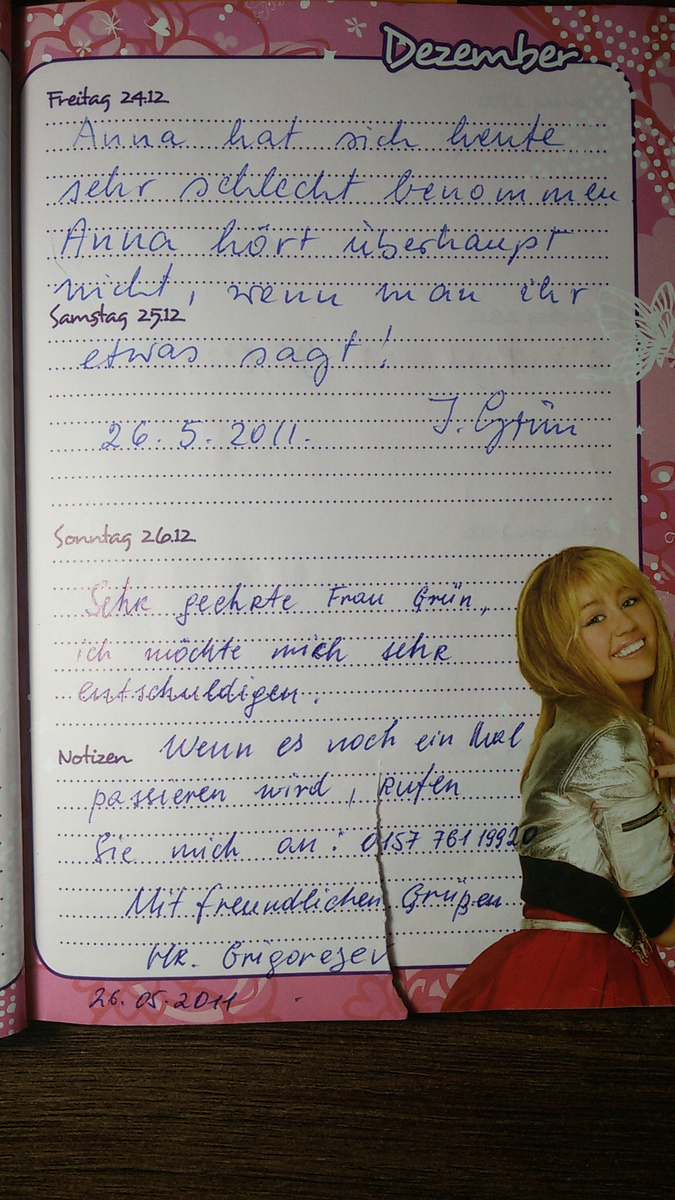 Dezember
Freitag 24.12
Anna hat sich heute
sehr schlecht benommen
Anna hört überhaupt
nicht, wenn man ihr
Samstag 25.12
etwas sagt!
26.5.2011. I. Grün
Sonntag 26.12
Sehr geehrte Frau Grün,
ich möchte mich sehr
entschuldigen.
Notizen Wenn es noch ein Mal
passieren wird, rufen
Sie mich an: 0157 761 19920
Mit freundlichen Grüßen
Hr. Grigoresev
26.05.2011